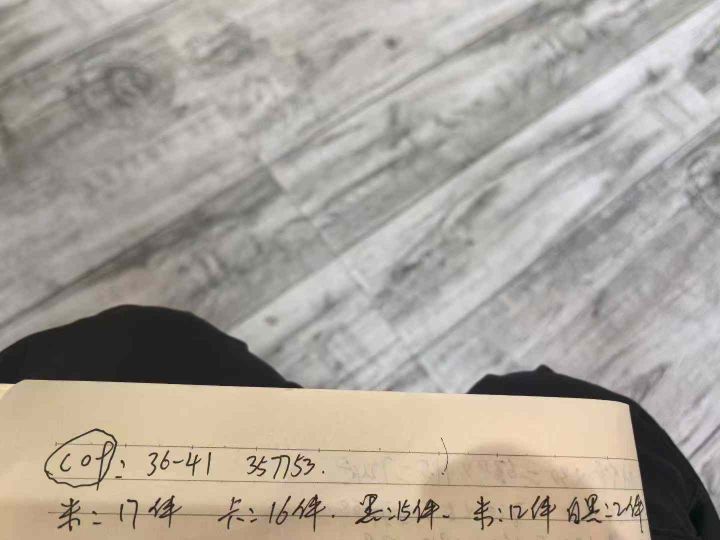 cop: 36-41 357753.
米: 17件 卡: 16件. 黑: 15件. 米: 12件 白黑: 2件